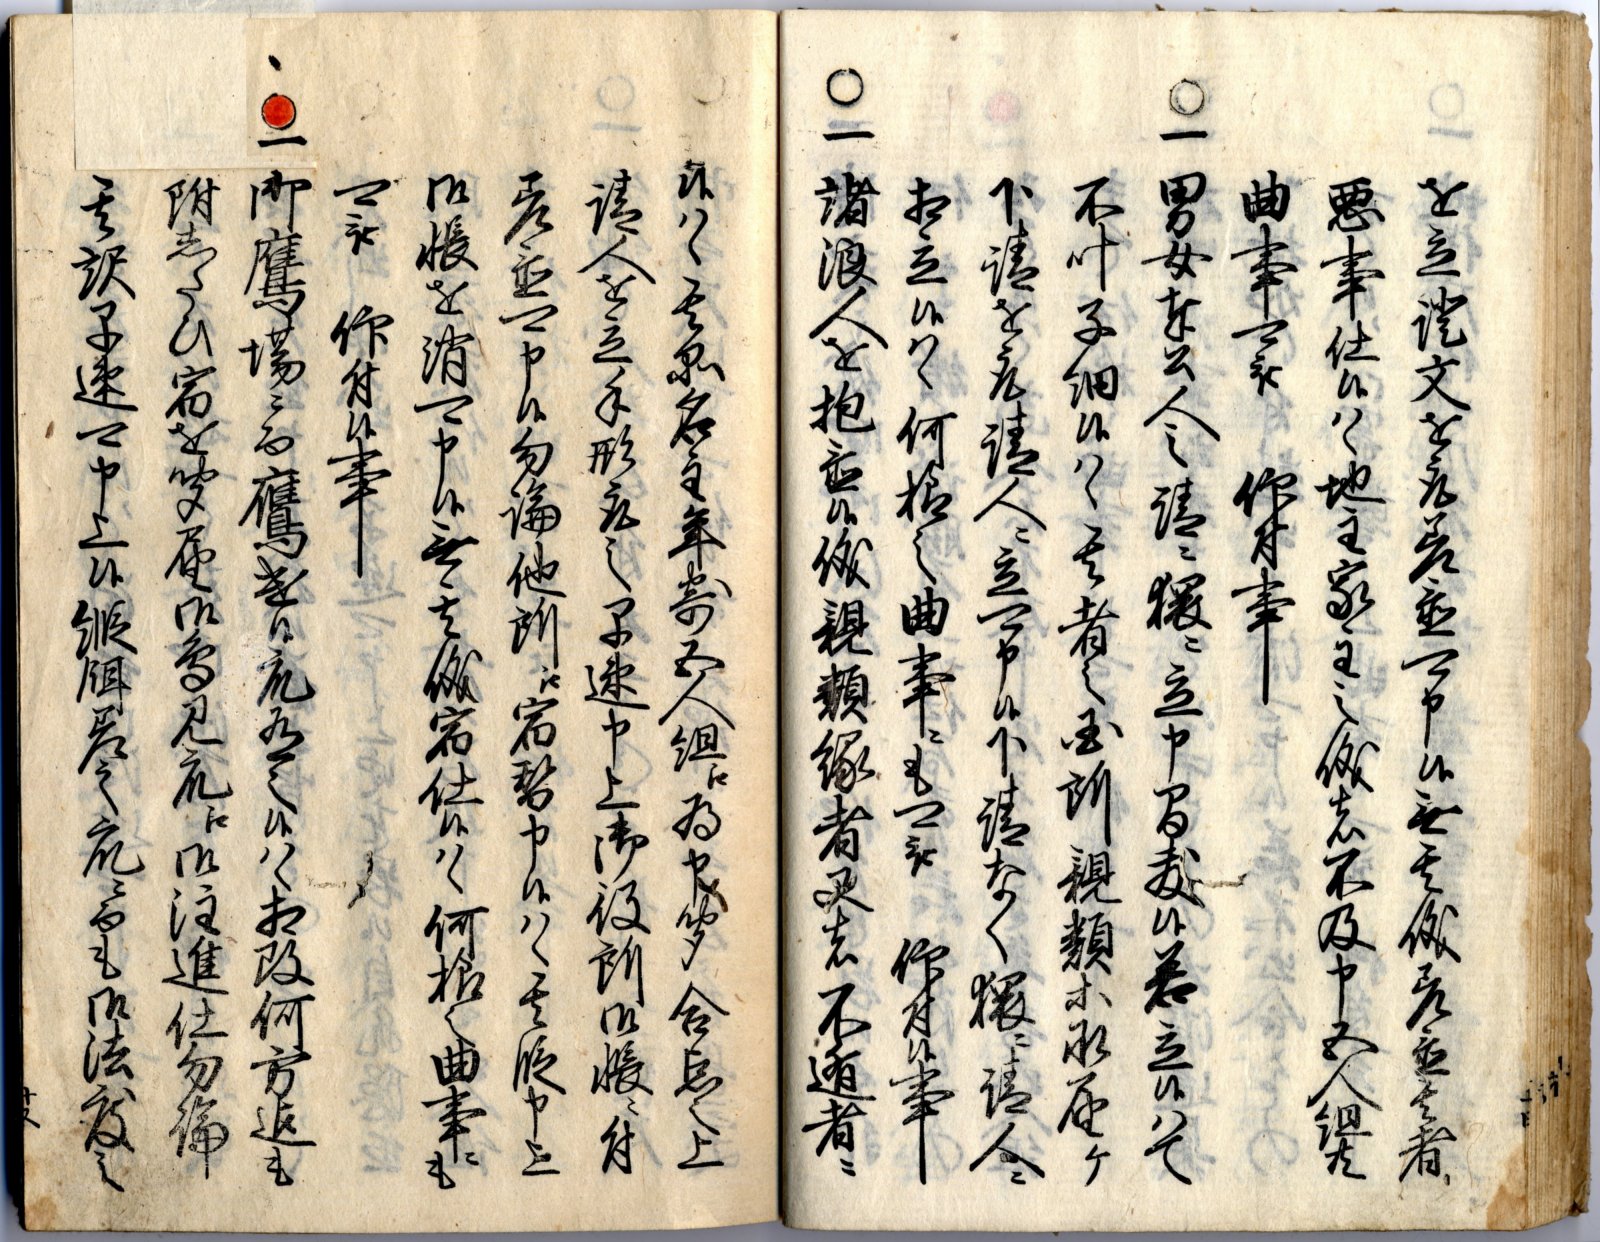 を立證文を取差置可申候無其儀差置其者
悪事仕候ハヽ地主家主之儀者不及申五人組共
曲事可被　仰付事
一男女奉公人之請ニ猥ニ立申間敷候若立候ハて
不叶子細候ハヽ其者之国所親類等承届ケ
下請を取請人ニ立可申候下請なく猥ニ請人ニ
相立候ハヽ何様之曲事ニも可被　仰付候事
一諸浪人を抱置候儀親類縁者又者不遁者ニ
候ハヽ其品名主年寄五人組江為申聞合点之上
請人を立手形取之早速申上御役所御帳ニ付
差置可申候勿論他所江宿替申候ハヽ其段申上
御帳を消可申候無其儀宿仕候ハヽ何様之曲事ニも
可被　仰付候事
一御鷹場ニ而鷹遣候者有之候ハヽ相改何方迄も
附したひ宿を聞届御鳥見衆江御注進仕勿論
其訳早速可申上候縦餌差之衆ニ而も御法度之